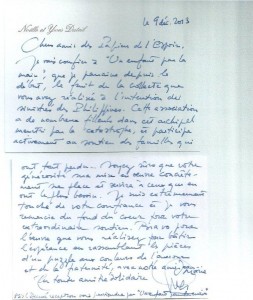 Noëlle et Yves Duteil
le 9 déc. 2013
Chers amis des Sapins de l'Espoir,
Je vous confie à "Un enfant par la
main", que je parraine depuis le
début, le fruit de la collecte que
vous avez réalisée à l'intention des
sinistrés des Philippines. Cette association
a de nombreux filleuls dans cet archipel
meurtri par la catastrophe, et participe
activement au soutien des familles qui
ont tout perdu. Soyez sûrs que votre
générosité sera mise en œuvre
sur place et servira à ceux qui en
ont le plus besoin. Je suis extrêmement
touché de votre confiance et je vous
remercie du fond du cœur pour votre
extraordinaire soutien. Bravo pour
l'œuvre que vous réalisez, pour bâtir
l'espérance en rassemblant les pièces
d'un puzzle aux couleurs de l'avenir
et de la fraternité, avec notre
En toute amitié solidaire
Yves